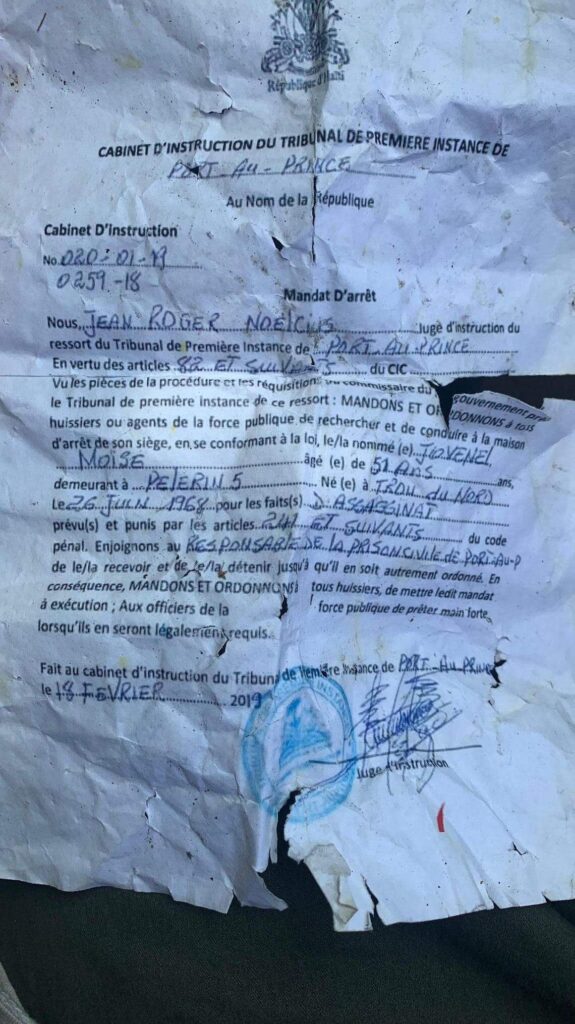 République d'Haïti
CABINET D'INSTRUCTION DU TRIBUNAL DE PREMIERE INSTANCE DE
PORT-AU-PRINCE
Au Nom de la République
Cabinet D'Instruction
No. 020-01-19
0259-18
Mandat D'arrêt
Nous, JEAN ROGER NOELCIUS Juge d'instruction du
ressort du Tribunal de Première Instance de PORT-AU-PRINCE
En vertu des articles 82 ET SUIVANTS du CIC
Vu les pièces de la procédure et les réquisitions du commissaire du gouvernement près
le Tribunal de première instance de ce ressort : MANDONS ET ORDONNONS à tous
huissiers ou agents de la force publique de rechercher et de conduire à la maison
d'arrêt de son siège, en se conformant à la loi, le/la nommé (e) JOVENEL
MOISE âgé (e) de 51 ANS ans,
demeurant à PELERIN 5 Né (e) à TROU DU NORD
Le 26 JUIN 1968 pour les faits(s) D'ASSASSINAT
prévu(s) et punis par les articles 241 ET SUIVANTS du code
pénal. Enjoignons au RESPONSABLE DE LA PRISON CIVILE DE PORT-AU-P
de le/la recevoir et de le/la détenir jusqu'à qu'il en soit autrement ordonné. En
conséquence, MANDONS ET ORDONNONS tous huissiers, de mettre ledit mandat
à exécution ; Aux officiers de la force publique de prêter main forte
lorsqu'ils en seront légalement requis.
Fait au cabinet d'instruction du Tribunal de Première Instance de PORT-AU-PRINCE
le 18 FEVRIER 2019
Juge d'instruction